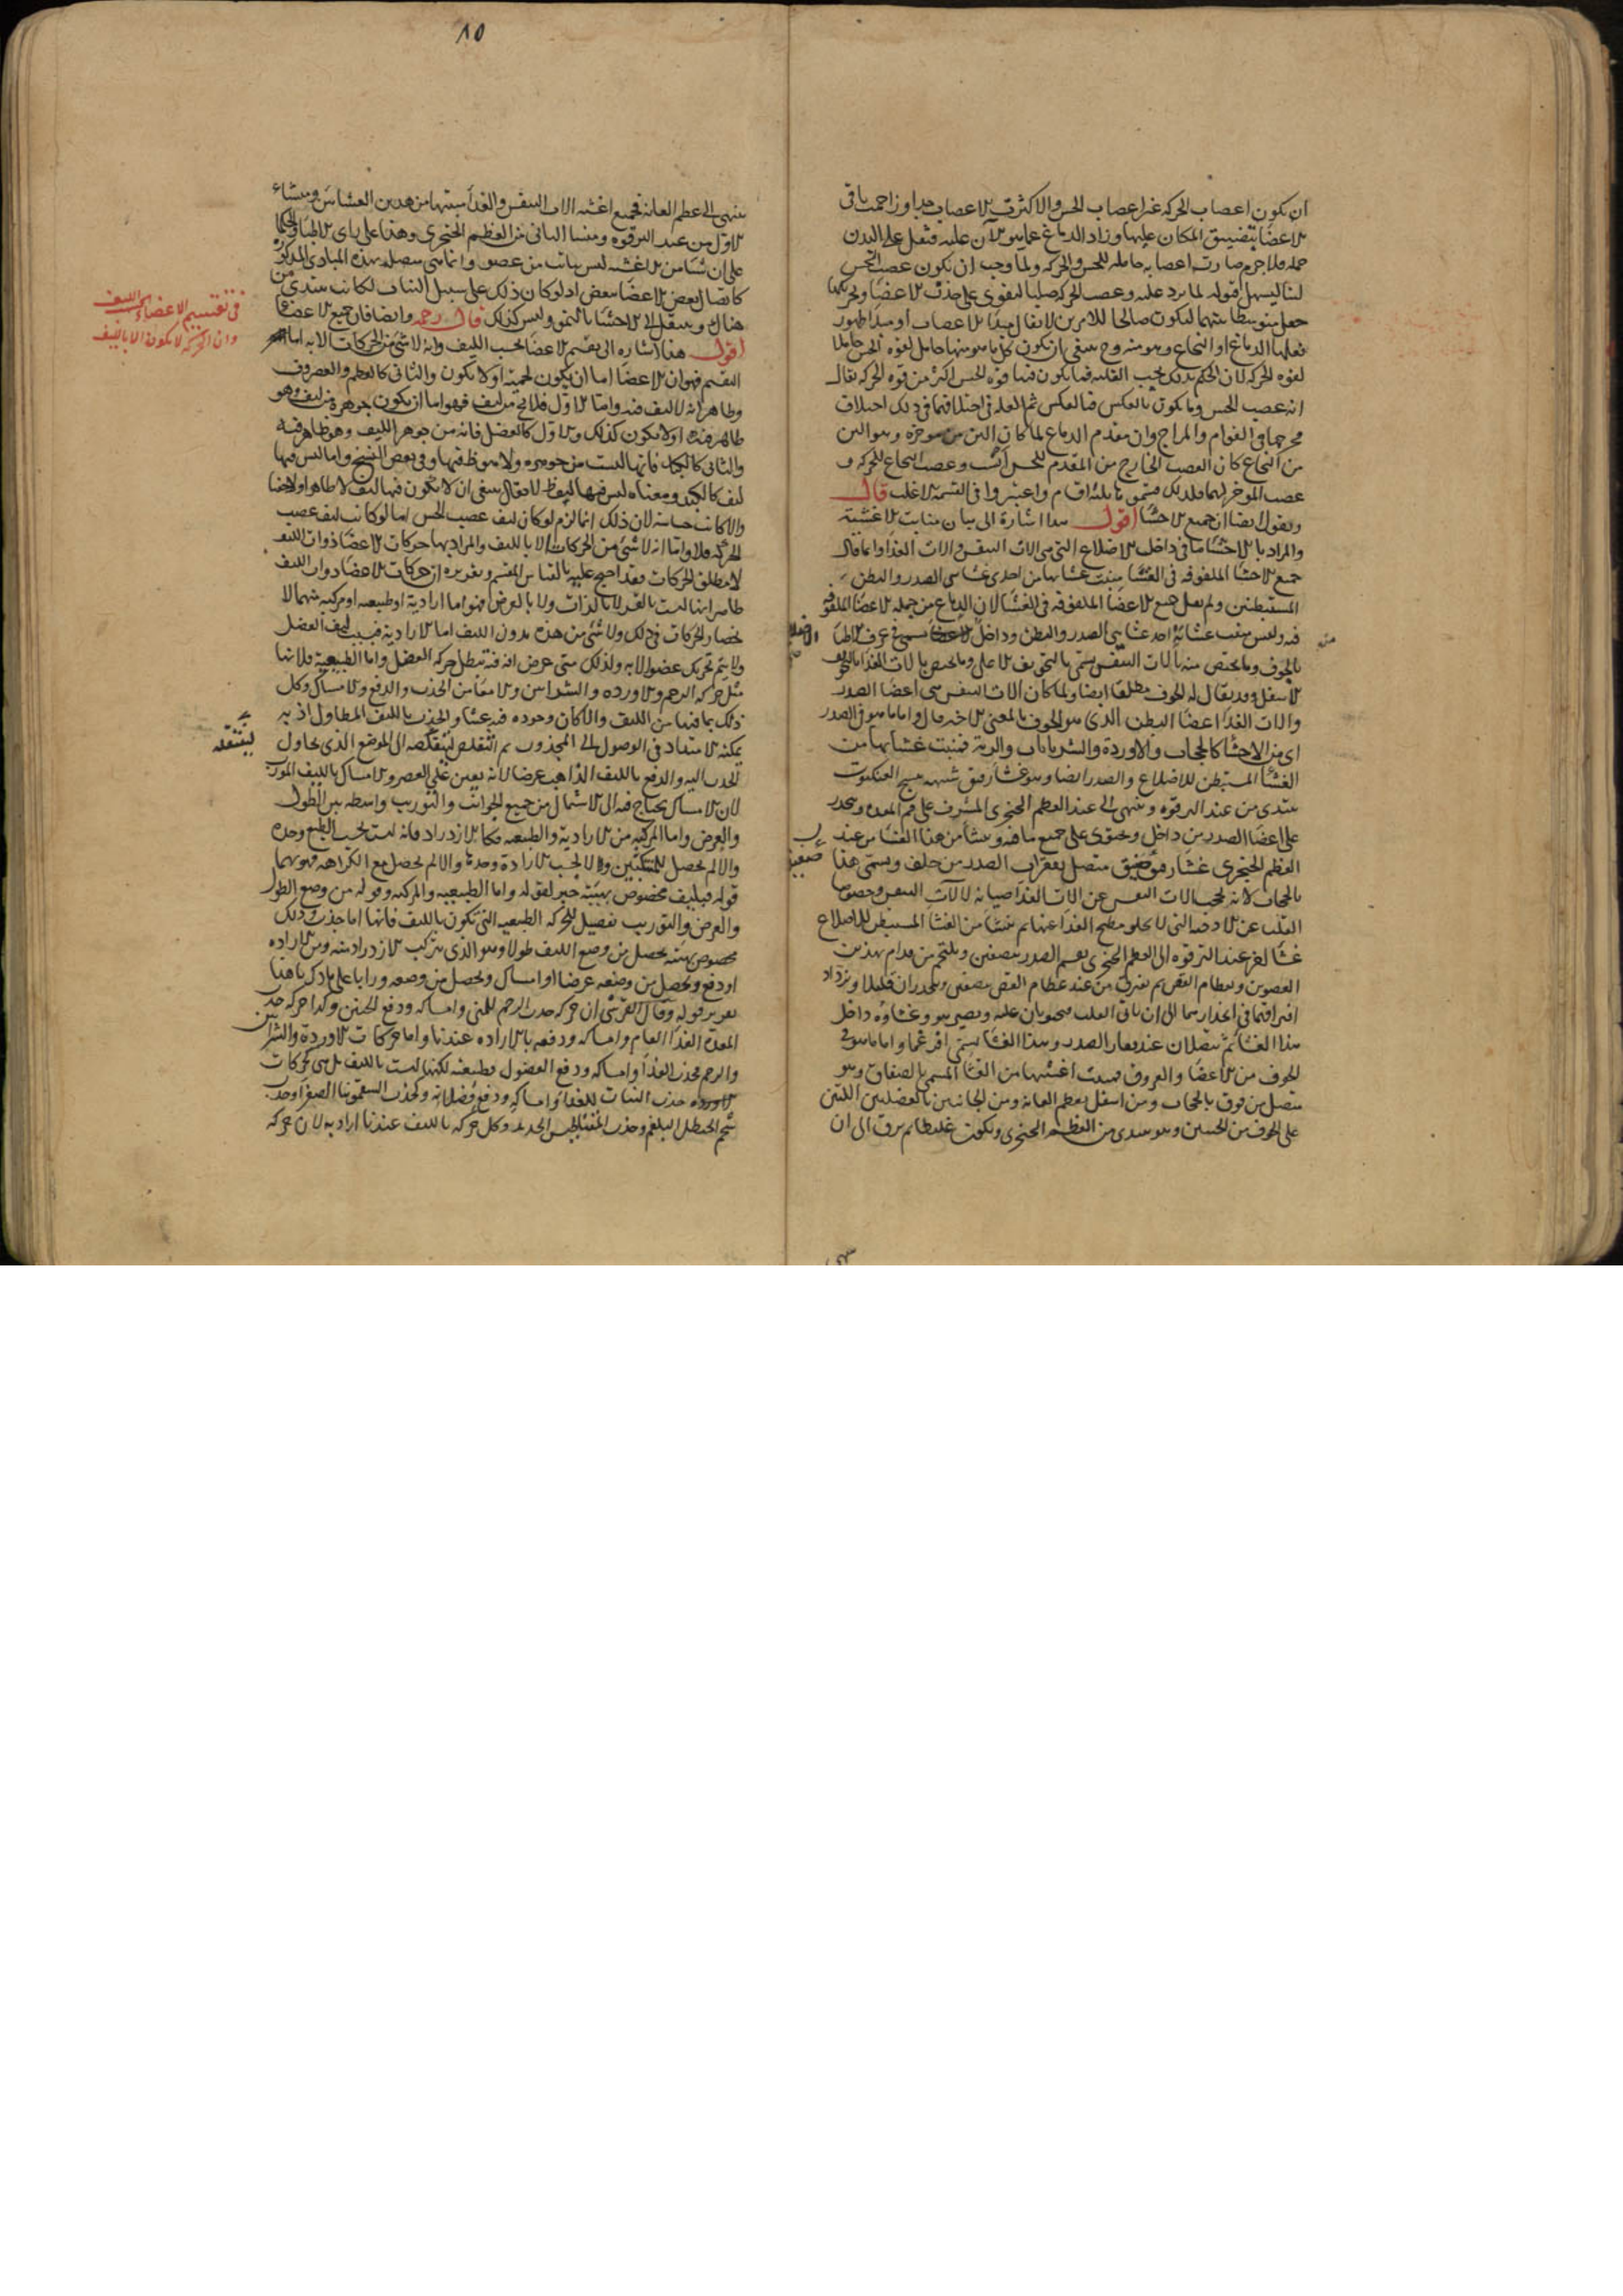 ان يكون اعصاب الحركة غير اعصاب الحس والا كثرت الاعصاب جدا وزاحمت باقي
الاعضا بتضييق المكان عليها وزاد الدماغ عما هو الآن عليه فثقل على البدن
حمله فلا جرم صارت اعصابه حاملة للحس والحركة ولما وجب ان يكون عصب الحس
لينا ليسهل قبوله لما يرد عليه وعصب الحركة صلبا ليقوى على جذب الاعضا وتحريكها
جعل متوسطا بينهما ليكون صالحا للامرين لا يقال مبدأ الاعصاب او مبدأ ظهور
لقوة الحركة لان الحكم بذلك بحسب الغلبة فما يكون فيها قوة الحس اكثر من قوة الحركة يقال
انه عصب الحس وما يكون بالعكس فبالعكس ثم العلة في اختلافها في ذلك اختلاف
مخرجهما في القوام والمزاج وان مقدم الدماغ لما كان الين من موخره وهو الين
من النخاع كان العصب الخارج من المقدم للحس انسب وعصب النخاع للحركة و
عصب الموخر لهما فلذلك قسمو ثلثة اقسام واعتبروا في التسمية الاغلب قال
ونقول ايضا ان جميع الاحشا اقول هذا اشارة الى بيان منابت الاغشية
والمراد بالاحشا ما في داخل الاضلاع التي هي آلات النفس والات الغذا وانما قال
جميع الاحشا الملفوفة في الغشا منبت غشائها من احدى غشائي الصدر والبطن
المستبطنين ولم يقل جميع الاعضا الملفوفة في الغشا لان الدماغ من جملة الاعضا الملفوفة
فيه وليس منبت غشائه احد غشائي الصدر والبطن وداخل الاضلاع يسمى في عرف الاطبا
بالجوف وما يختص منه بالات النفس يسمى بالتجويف الاعلى وما يختص بالات الغذا بالتجويف
الاسفل وقد يقال له الجوف مطلقا ايضا ولما كان الات النفس هي اعضا الصدر
والات الغذا اعضا البطن الذي هو الجوف بالمعنى الاخير قال واما ما هو في الصدر
اي من الاحشا كالحجاب والاوردة والشريانات والرية فنبت غشائها من
الغشا المستبطن للاضلاع والصدر ايضا وهو غشا رقيق شبيه بنسج العنكبوت
يبتدي من عند الترقوة وينتهي الى عند العظم الخنجري المشرف على فم المعدة وينحدر
على اعضا الصدر من داخل ويحتوي على جميع ما فيه وينشأ من هذا الغشا من عند
العظم الخنجري غشا رقيق متصل بفقرات الصدر من خلف ويسمى هذا
بالحجاب لانه يحجب الات النفس عن الات الغذا صيانة لالات النفس وخصوصا
القلب عن الادخنة التي لا يخلو مطبخ الغذا عنها ثم ينشأ من الغشا المستبطن للاضلاع
غشا اخر عند الترقوة الى العظم الخنجري يقسم الصدر بنصفين ويلتحم من قدام بهذين
هذا الغشا ثم يتصلان عند فقار الصدر وهذا الغشا يسمى
الجوف من الاعضا والعروق فمنبت اغشيتها من الغشا المسمى بالصفاق وهو
متصل من فوق بالحجاب ومن اسفل بعظم العانة ومن الجانبين بالعضلتين اللتين
على الجوف من الجنبين وهو يبتدي من العظم الخنجري ويكون غليظا ثم يرق الى ان
١٥
ينتهي الى عظم العانة فجميع اغشية الات النفس والغذا منبتها من هذين الغشائين ومنشاء
الاول من عند الترقوة ومنشا الثاني من العظم الخنجري وهذا على راى الاطبا والحكما
على ان شيا من الاغشية ليس بنابت من عضو وانما هي متصلة بهذه المبادى المذكورة
كاتصال بعض الاعضا ببعض اذ لو كان ذلك على سبيل النبات لكانت تبتدى من
هناك وينتقل الى الاحشا بالنمو وليس كذلك قال رحمه وايضا فان جميع الاعضا
اقول هذا اشارة الى تقسيم الاعضا بحسب الليف وانه لا شي من الحركات الا به اما
التقسيم فهو ان الاعضا اما ان يكون لحمية او لا يكون والثاني كالعظم والغضروف
وظاهر انه لا ليف فيه واما الاول فلا يخ من ليف فهو اما ان يكون جوهره من ليف وهو
ظاهر فيه او لا يكون كذلك والاول كالعضل فانه من جوهر الليف وهو ظاهر فيه
والثاني كالكبد فانها ليست من جوهره ولا هو ظ فيها وفي بعض النسخ واما ليس فيها
ليف كالكبد ومعناه ليس فيها ليف ظ لا يقال ينبغي ان لا يكون فيها ليف لا ظاهرا ولا خفيا
والا كانت حساسة لان ذلك انما لزم لو كان ليف عصب الحس اما لو كانت ليف عصب
الحركة فلا واما انه لا شي من الحركات الا بالليف والمراد بها حركات الاعضا ذوات الليف
لا مطلق الحركات فقد احتج عليه بالقياس المقسم وتقريره ان حركات الاعضا ذوات الليف
ظاهر انها ليست بالقسر لا بالذات ولا بالعرض فهو اما ارادية او طبيعية او مركبة منهما لا
نحصار الحركات في ذلك ولا شي من هذه بدون الليف اما الارادية فبسبب ليف العضل
ولا يتم تحريك عضو الا به ولذلك متى عرض افة فيه بطل حركة العضل واما الطبيعية فلانها
مثل حركة الرحم والاوردة والشرايين والامعا من الجذب والدفع والامساك وكل
ذلك بما فيها من الليف والا كان وجوده فيه عبثا والجذب بالليف المطاول اذ به
يمكنه الامتداد في الوصول الى المجذوب ثم التقلص لينقله الى الموضع الذي يحاول
الجذب اليه والدفع بالليف الذاهب عرضا لانه يعين على العصر والامساك بالليف المورب
لان الامساك يحتاج فيه الى الاشتمال من جميع الجوانب والتوريب واسطة بين الطول
والعرض واما المركبة من الارادية والطبيعية فكالازدراد فانه ليست بحسب الطبع وحده
قوله فبليف مخصوص بهيئة خبر لقوله واما الطبيعية والمركبة وقوله من وضع الطول
والعرض والتوريب تفصيل للحركة الطبيعية التي تكون بالليف فانها اما جذب وذلك
مخصوص بهيئة يحصل من وضع الليف طولا وهو الذي يتركب الازدراد منه ومن الارادة
او دفع ويحصل من وضعه عرضا او امساك ويحصل من وضعه ورابا على ما ذكر هذا
تقرير قوله وقال القرشي ان حركة جذب الرحم للمني وامساكه ودفع الجنين وكذا حركة جذب
المعدة الغذا العام وامساكه ودفعه بالارادة عندنا واما حركات الاوردة والشرايين
والرحم بجذب الغذا وامساكه ودفع الفضول فطبيعية لكنها ليست بالليف بل هي كحركات
جذب النبات للغذا وامساكه ودفع فضلاته وكجذب السقمونيا الصفرا وجذب
شحم الحنظل البلغم وجذب المغناطيس الحديد وكل حركة بالليف عندنا ارادية لان حركة
في تقسيم الاعضاء بحسب الليف
وان الحركة لا يكون الا بالليف
لينقله